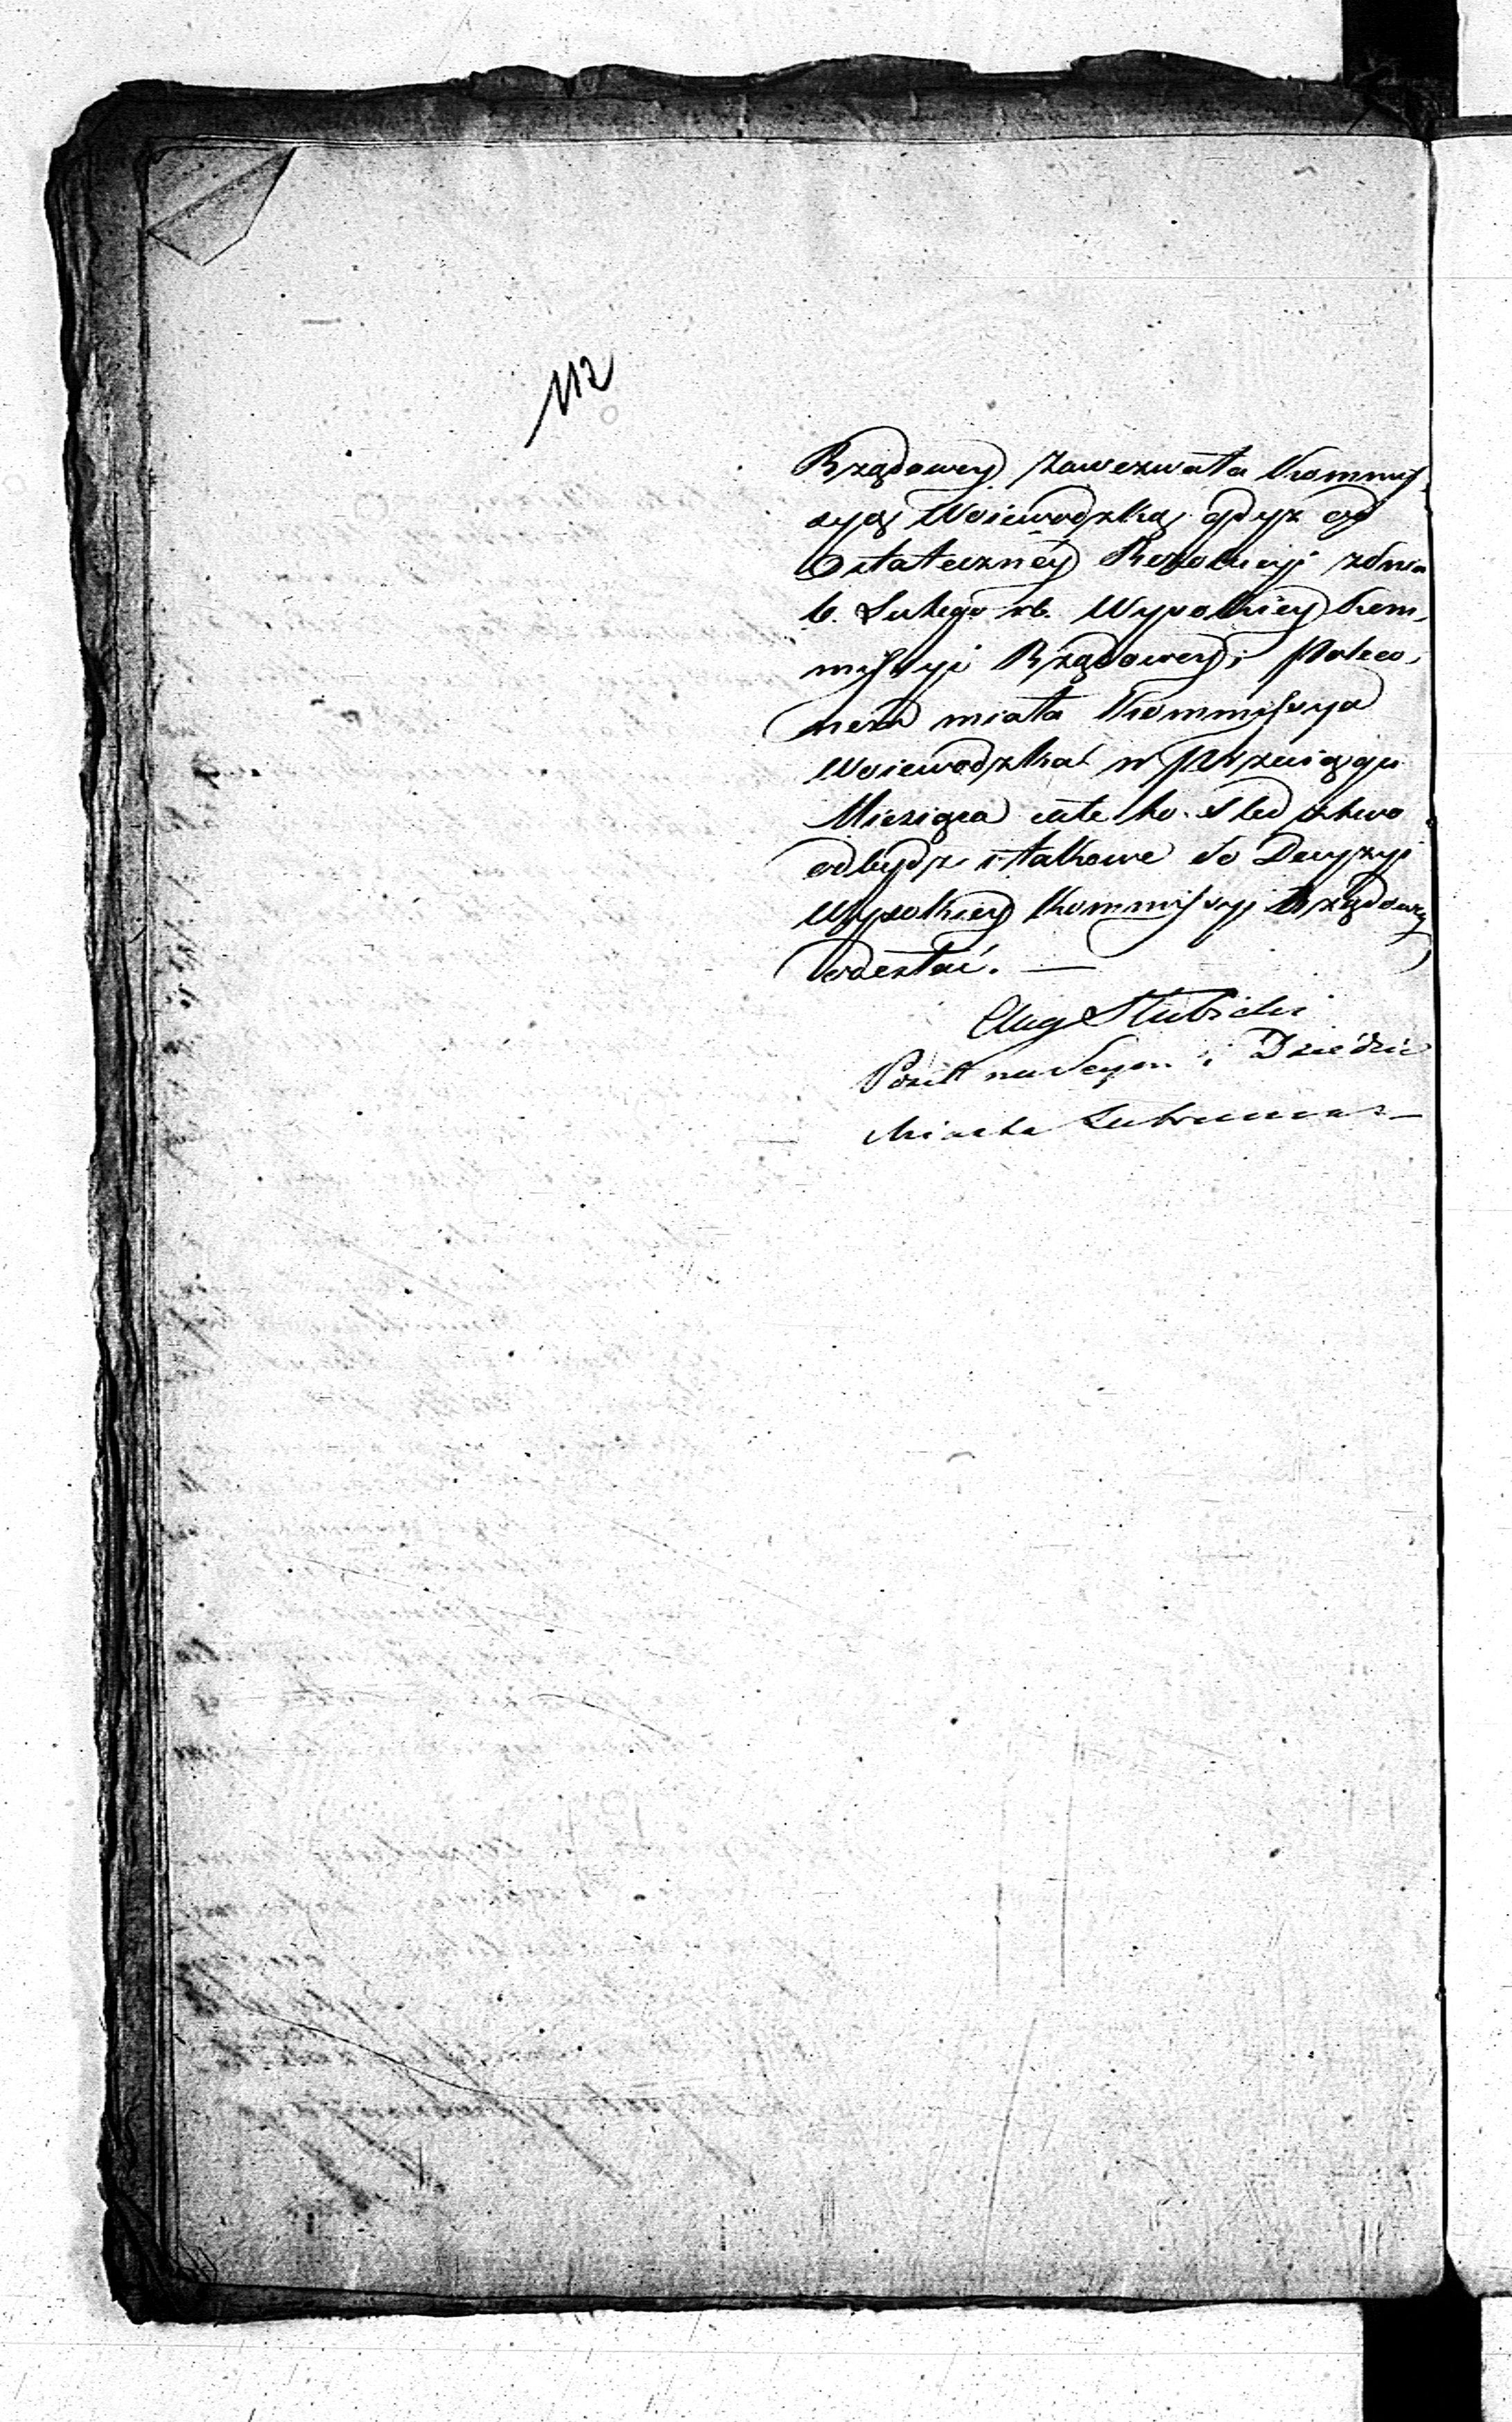 112
Rządowey zawezwała Kommis
syą Woiewodzką gdyż od
Ostateczney Rezolucyi zdnia
6. Lutego rb. Wysokiey Kom,
missyi Rządowey, poleco,
nem miała Kommissya
Woiewodzka w przeciągu
Miesiąca całe to Sledztwo
odbydz i takowe do Decyzyi
Wysokiey Kommissyi Rządowey
odesłać. —
Aug Słubicki
Poseł na Seym i Dziedzic
Miasta